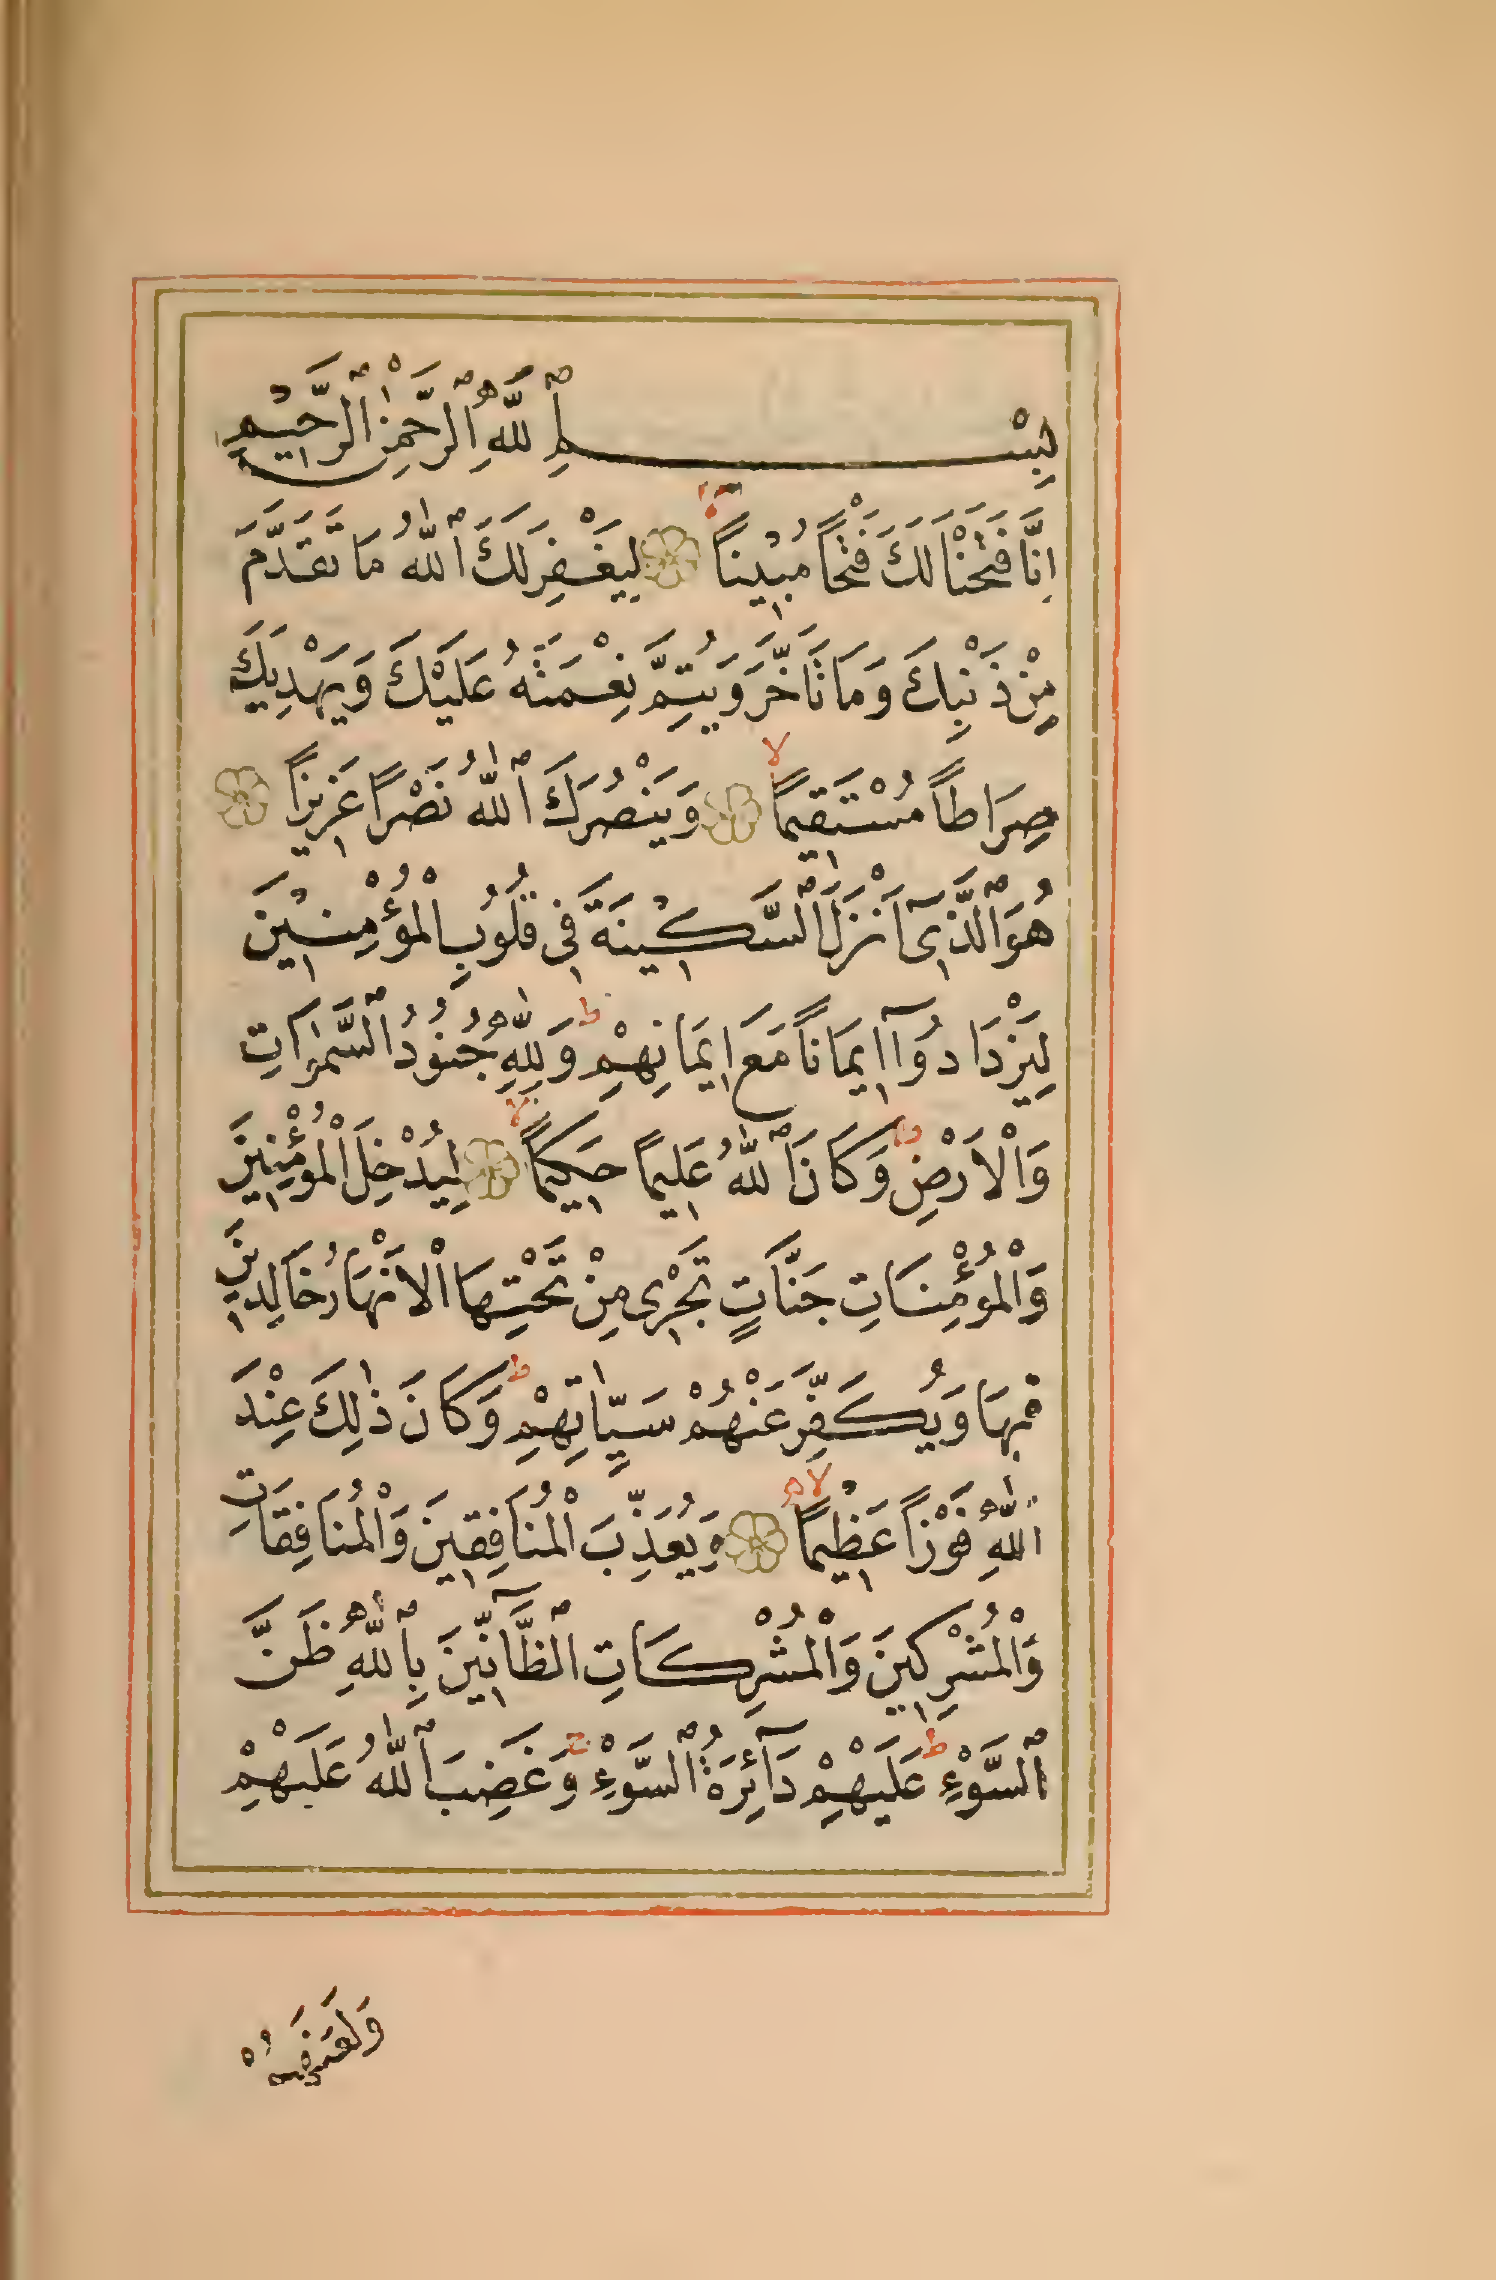 بِسْمِ ٱللّٰهِ ٱلرَّحْمٰنِ ٱلرَّحِيْمِ
اِنَّا فَتَحْنَا لَكَ فَتْحاً مُبِيْناً ۙ لِيَغْفِرَ لَكَ ٱللّٰهُ مَا تَقَدَّمَ
مِنْ ذَنْبِكَ وَمَا تَاَخَّرَ وَيُتِمَّ نِعْمَتَهُ عَلَيْكَ وَيَهْدِيَكَ
صِرَاطاً مُسْتَقِيماً ۙ وَيَنْصُرَكَ ٱللّٰهُ نَصْراً عَزِيزاً
هُوَ ٱلَّذِىٓ اَنْزَلَ ٱلسَّكِيْنَةَ فِى قُلُوبِ الْمُؤْمِنِيْنَ
لِيَزْدَادُوٓا اِيمَاناً مَعَ اِيمَانِهِمْ ط وَلِلّٰهِ جُنُودُ ٱلسَّمٰوَاتِ
وَالْاَرْضِ ط وَكَانَ ٱللّٰهُ عَلِيماً حَكِيماً ۙ لِيُدْخِلَ الْمُؤْمِنِينَ
وَالْمُؤْمِنَاتِ جَنَّاتٍ تَجْرِى مِنْ تَحْتِهَا الْاَنْهَارُ خَالِدِينَ
فِيهَا وَيُكَفِّرَ عَنْهُمْ سَيِّاٰتِهِمْ ط وَكَانَ ذٰلِكَ عِنْدَ
ٱللّٰهِ فَوْزاً عَظِيْماً ۙ وَيُعَذِّبَ الْمُنَافِقِينَ وَالْمُنَافِقَاتِ
وَالْمُشْرِكِينَ وَالْمُشْرِكَاتِ ٱلظَّآنِّينَ بِٱللّٰهِ ظَنَّ
ٱلسَّوْءِ ط عَلَيْهِمْ دَآئِرَةُ ٱلسَّوْءِ ج وَغَضِبَ ٱللّٰهُ عَلَيْهِمْ
وَلَعَنَهُمْ